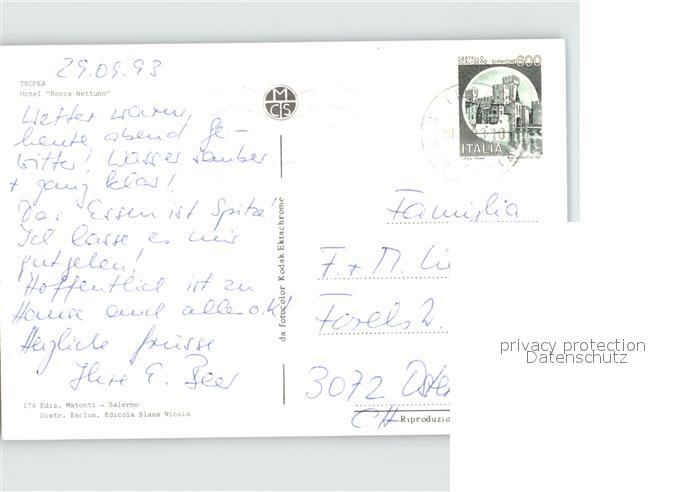 29.09.93
TROPEA
Hotel "Rocca Nettuno"
Wetter warm,
heute abend Ge-
witter! Wasser sauber
+ ganz klar!
Das Essen ist Spitze!
Ich lasse es mir
gutgehen!
Hoffentlich ist zu
Hause auch alles o.k!
Herzliche Grüsse
Ihre E. Beer
174 Ediz. Matonti - Salerno
Distr. Esclus. Edicola Blasa Nicola
MCS
da fotocolor Kodak Ektachrome
CASTELLO
SIRMIONE
800
ITALIA
Famiglia
F. + M.
3072
CH
Riproduzio
privacy protection
Datenschutz